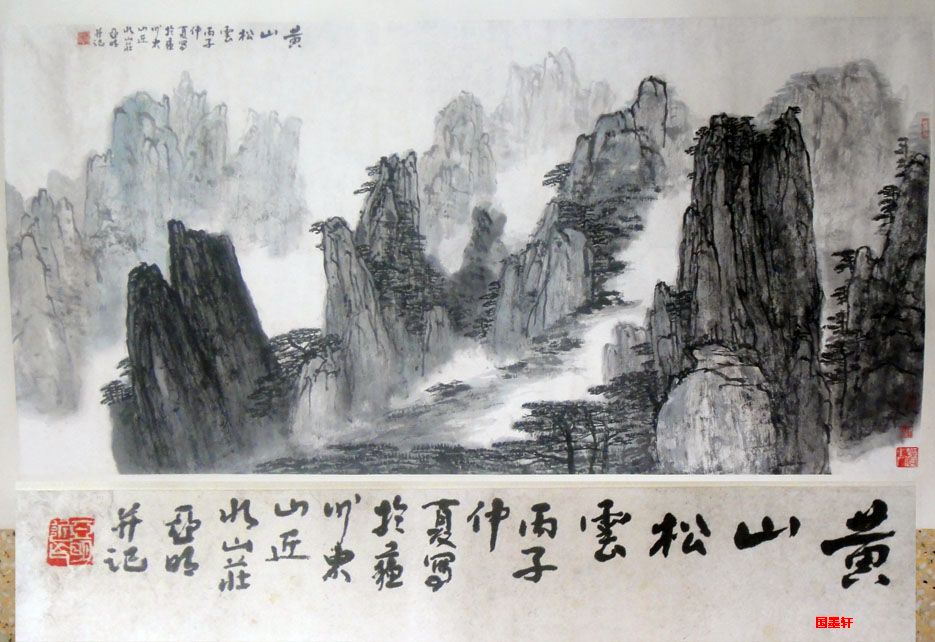 黄山松雲
丙子
仲
夏寫
於蘇
州東
山近
水山莊
亞明
并記
黄山松雲
丙子
仲
夏寫
於蘇
州東
山近
水山莊
亞明
并記
国墨轩